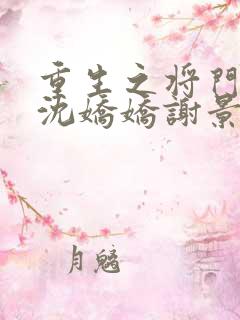 重生之将門
沈嬌嬌謝景
月魑